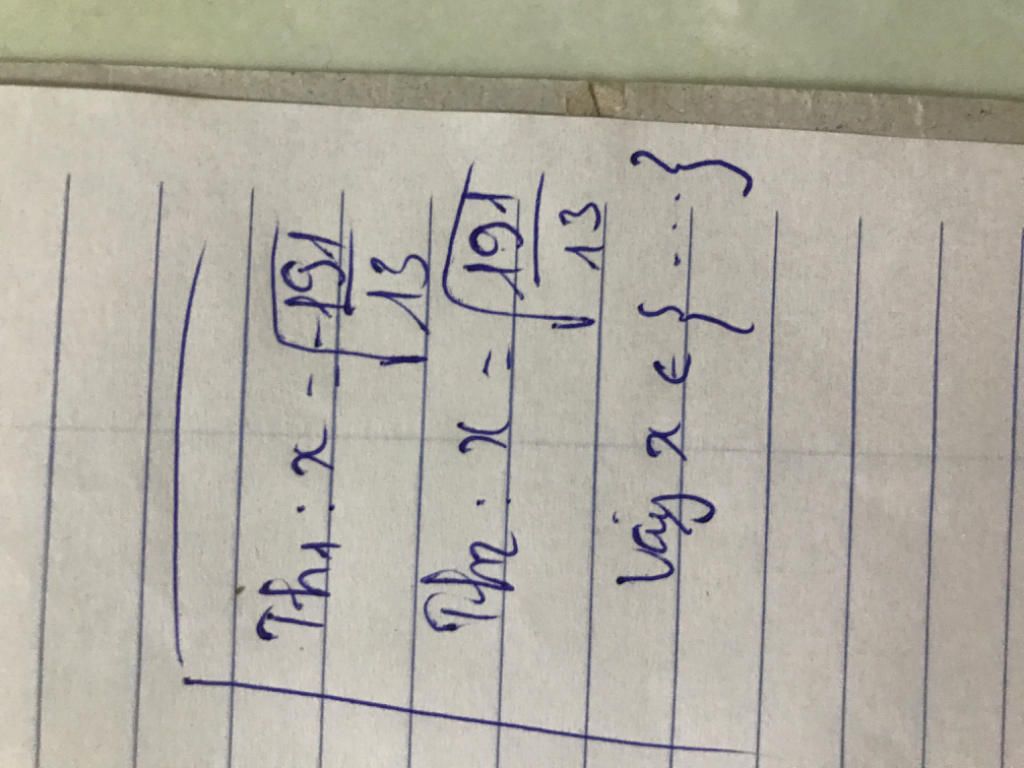 Th1: x = -191/13
Th2: x = 191/13
Vậy x ∈ {.....}